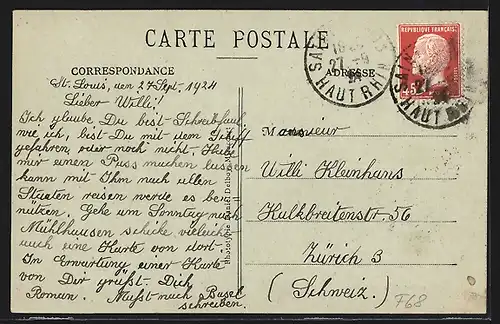 CARTE POSTALE
CORRESPONDANCE
ADRESSE
St. Louis, den 27 Sept. 1924
Lieber Willi!
Ich glaube Du bist Schreibfaul
wie ich, bist Du mit dem Schiff
gefahren oder noch nicht. Habe
mir einen Pass machen lassen
kann mit Ihm nach allen
Staaten reisen werde es be-
nützen. Gehe am Sonntag nach
Mühlhausen schicke vieleicht
auch eine Karte von dort.
In Erwartung einer Karte
von Dir grüsst Dich
Roman. Mußt nach Basel
schreiben.
Phototypie Daniel Delboy
Monsieur
Willi Kleinhans
Kalkbreitenstr. 56
Zürich 3
(Schweiz.)
F68
REPUBLIQUE FRANÇAISE
45
POSTES
HAUT RHIN
27 -9
24
HAUT